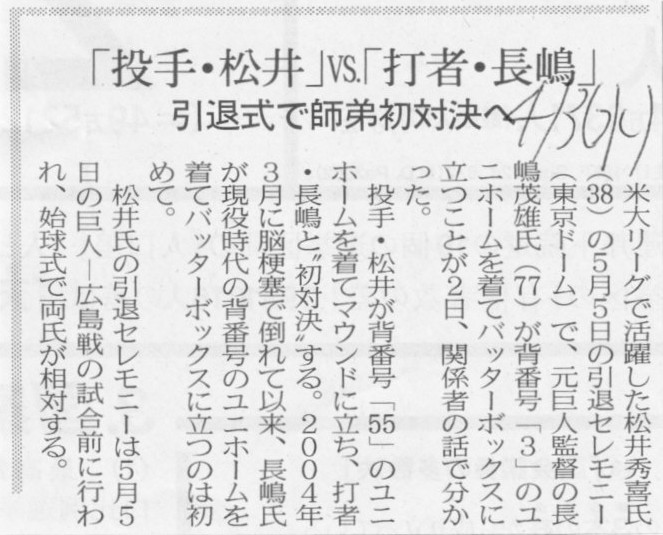 「投手・松井」VS.「打者・長嶋」
引退式で師弟初対決へ
米大リーグで活躍した松井秀喜氏
(38)の5月5日の引退セレモニー
(東京ドーム)で、元巨人監督の長
嶋茂雄氏(77)が背番号「3」のユ
ニホームを着てバッターボックスに
立つことが2日、関係者の話で分か
った。
投手・松井が背番号「55」のユニ
ホームを着てマウンドに立ち、打者
・長嶋と〝初対決〟する。2004年
3月に脳梗塞で倒れて以来、長嶋氏
が現役時代の背番号のユニホームを
着てバッターボックスに立つのは初
めて。
松井氏の引退セレモニーは5月5
日の巨人―広島戦の試合前に行わ
れ、始球式で両氏が相対する。